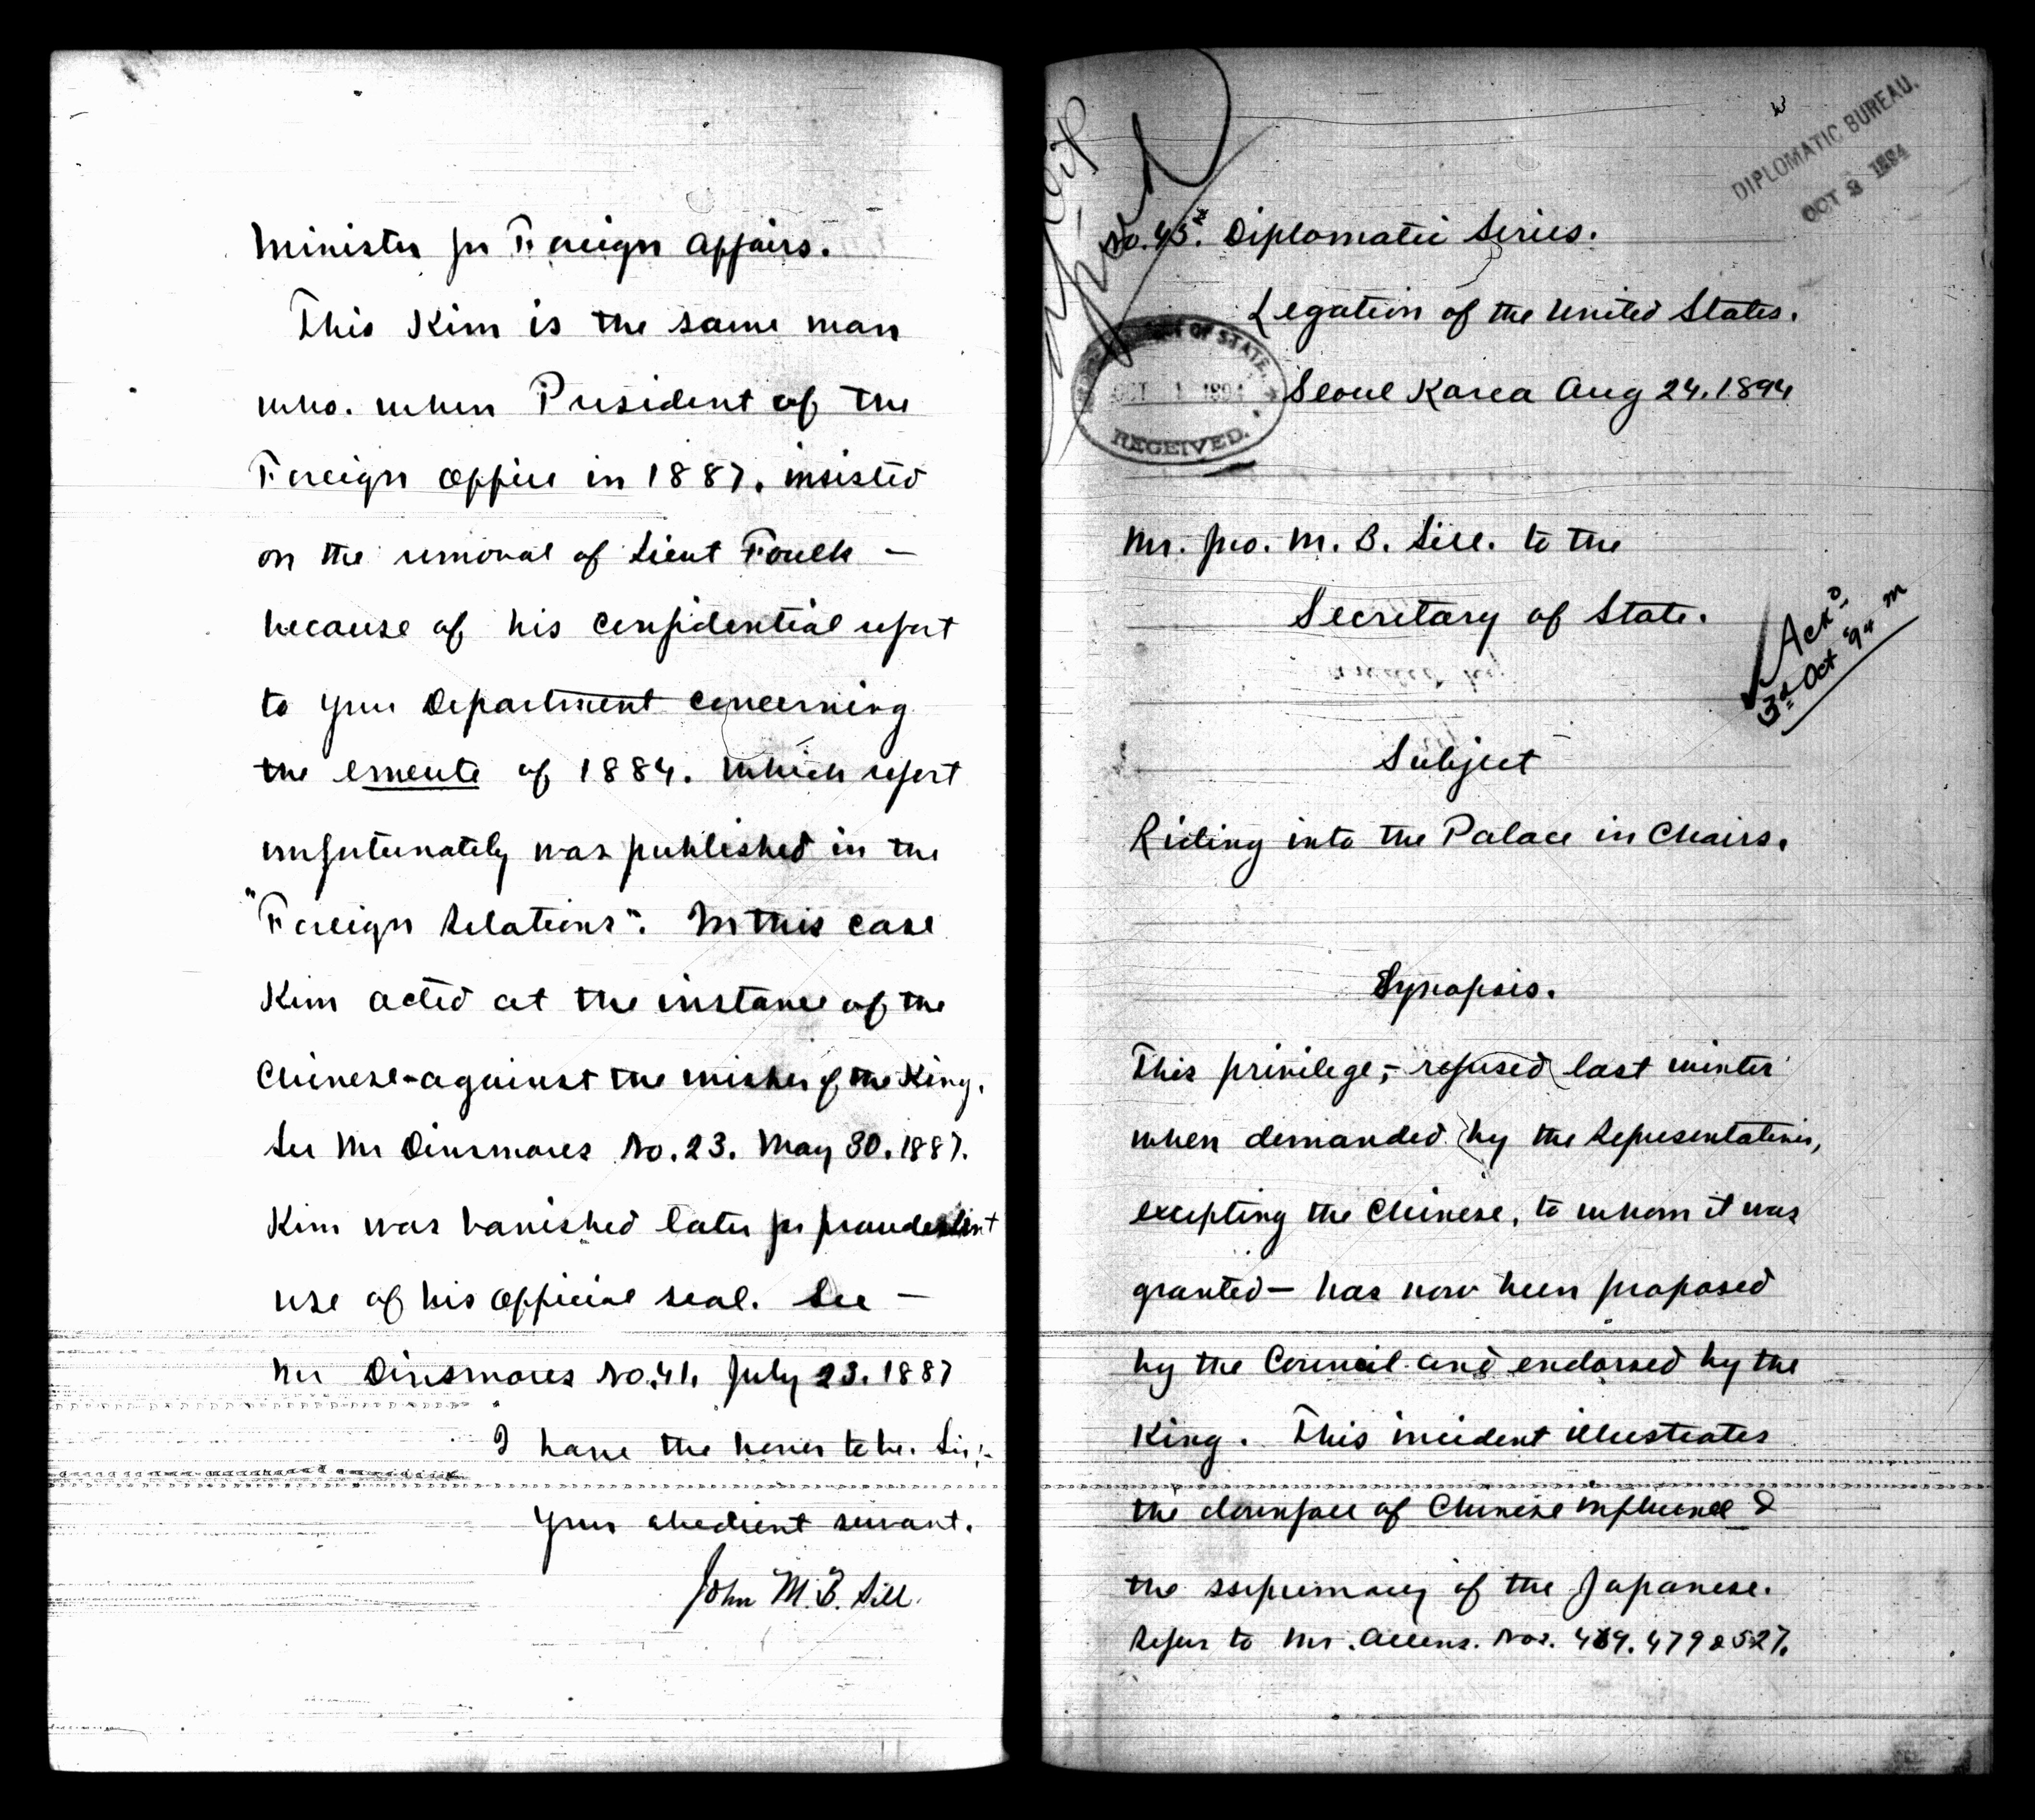 Minister for Foreign Affairs.
This Kim is the same man
who. when President of the
Foreign Office in 1887. insisted
on the removal of Lieut Foulk —
because of his confidential report
to your Department concerning
the emeute of 1884. which report
unfortunately was published in the
"Foreign Relations". In this case
Kim acted at the instance of the
Chinese - against the wishes of the King.
See Mr Dinsmores No. 23. May 30. 1887.
Kim was banished later for fraudulent
use of his official seal. See —
Mr Dinsmores No. 41. July 23. 1887
I have the honor to be. Sir:-
Your obedient servant.
John M. B. Sill.
DIPLOMATIC BUREAU.
OCT 2 1894
No. 45. Diplomatic Series.
Legation of the United States.
OF STATE.
OCT 1 1894
RECEIVED.
Seoul Korea Aug 24. 1894
Mr. Jno. M. B. Sill. to the
Secretary of State.
Ack'd
3d Oct '94 m
Subject
Riding into the Palace in Chairs.
Synopsis.
This privilege, - refused last winter
when demanded by the Representatives,
excepting the Chinese, to whom it was
granted — has now been proposed
by the Council and endorsed by the
King. This incident illustrates
the downfall of Chinese influence &
the supremacy of the Japanese.
Refers to Mr. Allens. Nos. 469. 479 & 527.